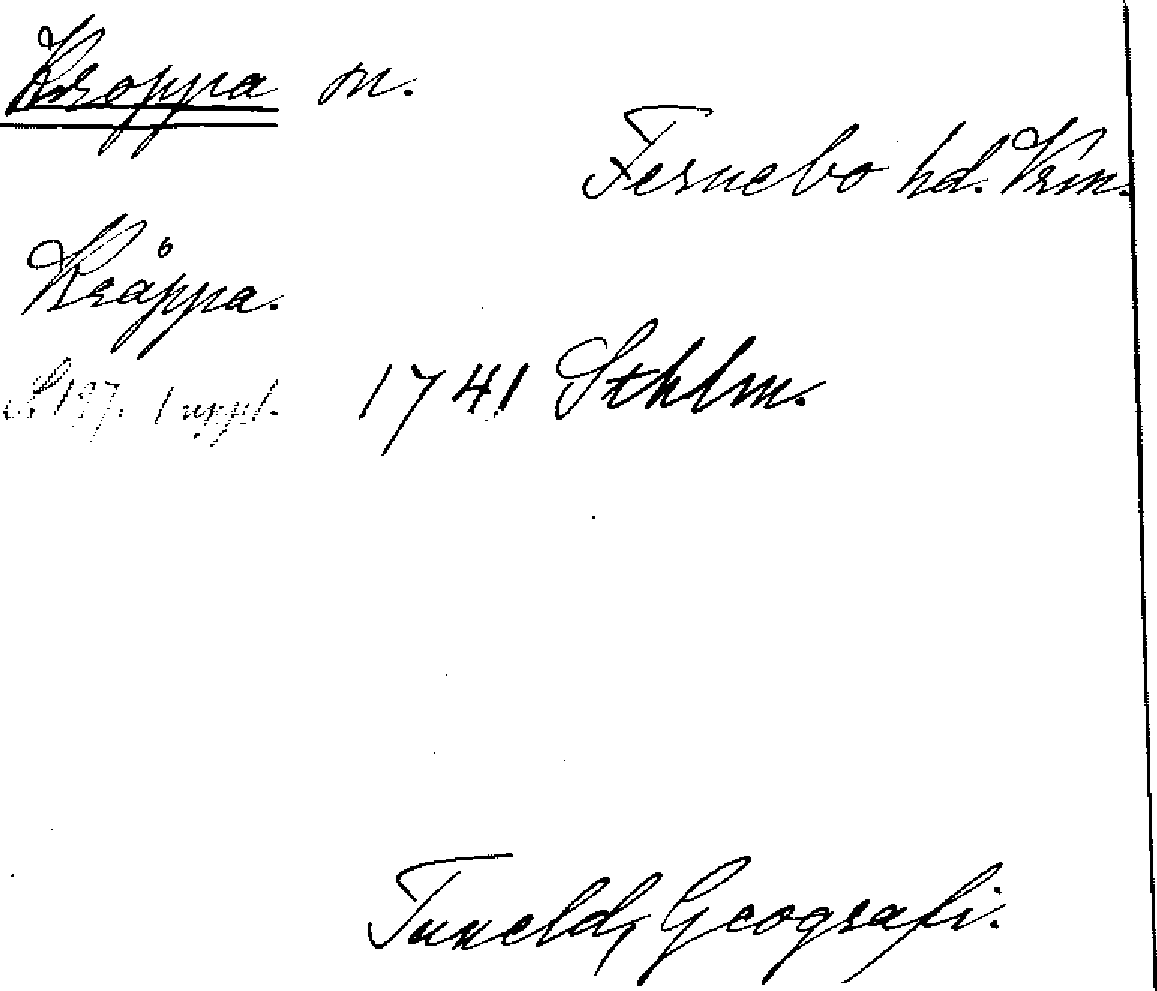 Kroppa sn.
Fernebo hd. Vrm.
Kråppa.
S. 197. 1 uppl. 1741 Sthlm.
Tuneld, Geografi.